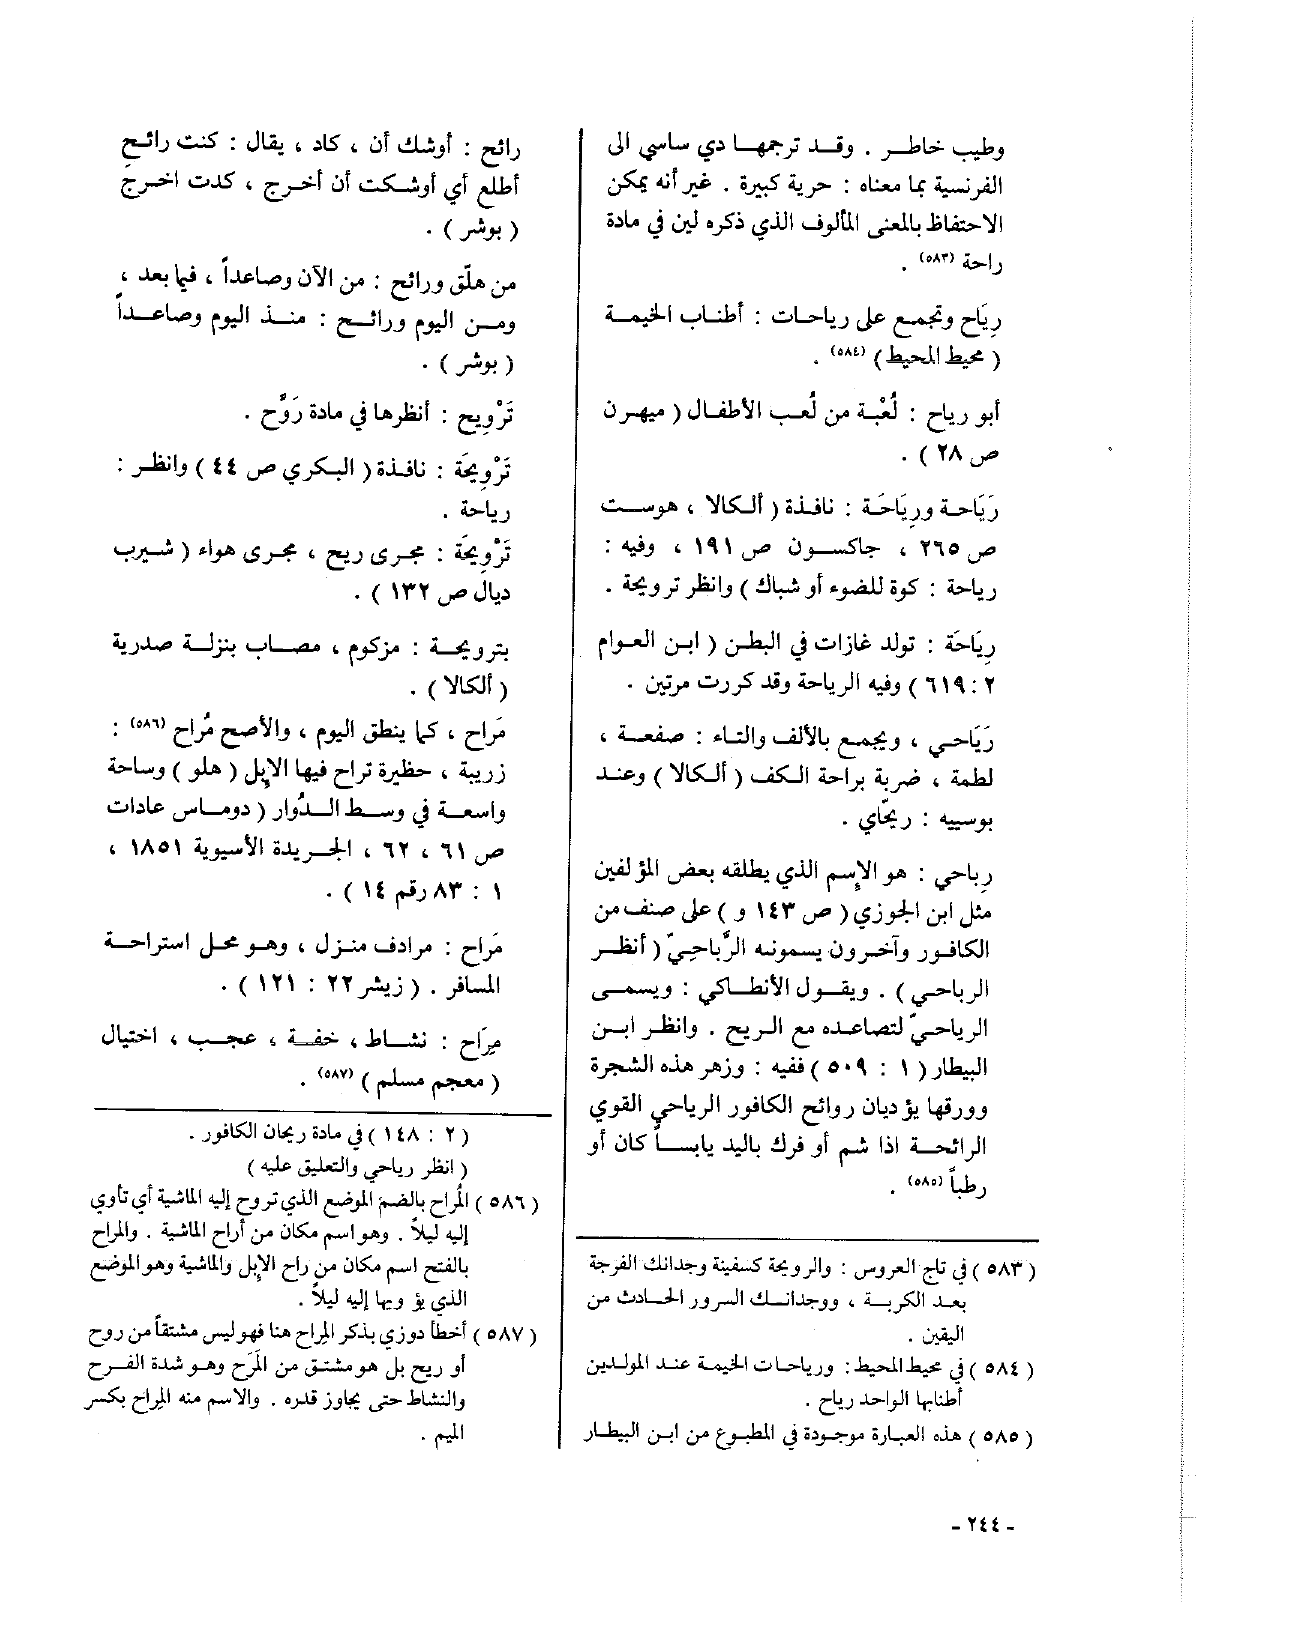 وطيب خاطـر . وقـد ترجمهـا دي ساسي الى
الفرنسية بما معناه : حرية كبيرة . غير أنه يمكن
الاحتفاظ بالمعنى المألوف الذي ذكره لين في مادة
راحة (٥٨٣) .
رِيَاح وتجمع على رياحات : أطناب الخيمـة
( محيط المحيط ) (٥٨٤) .
أبو رياح : لُعْبة من لُعب الأطفـال ( ميهرن
ص ٢٨ ) .
رَيَاحـة ورِيَاحَـة : نافـذة ( ألكالا ، هوست
ص ٢٦٥ ، جاكسون ص ١٩١ ، وفيه :
رياحة : كوة للضوء أو شباك ) وانظر ترويحة .
رِيَاحَة : تولد غازات في البطـن ( ابن العوام
٢ : ٦١٩ ) وفيه الرياحة وقد كررت مرتين .
رَيَاحي ، ويجمع بالألف والتـاء : صفعـة ،
لطمة ، ضربة براحة الكف ( ألكالا ) وعنـد
بوسييه : ريحّاي .
رياحي : هو الإسم الذي يطلقه بعض المؤلفين
مثل ابن الجوزي ( ص ١٤٣ و ) على صنف من
الكافـور وآخـرون يسمونـه الرَّباحيّ ( أنظـر
الرباحـي ) . ويقـول الأنطـاكي : ويسمـى
الرياحيّ لتصاعده مع الريح . وانظر ابـن
البيطار ( ١ : ٥٠٩ ) ففيه : وزهر هذه الشجرة
وورقها يؤديان روائح الكافور الرياحي القوي
الرائحـة اذا شم أو فرك باليد يابسـاً كان أو
رطباً (٥٨٥) .
( ٥٨٣ ) في تاج العروس : والرويحة كسفينة وجدانك الفرجة
بعـد الكربـة ، ووجدانـك السرور الحـادث من
اليقين .
( ٥٨٤ ) في محيط المحيط : ورياحات الخيمة عند المولدين
أطنابها الواحد رياح .
( ٥٨٥ ) هذه العبارة موجودة في المطبوع من ابـن البيطـار
رائح : أوشك أن ، كاد ، يقال : كنت رائـح
أطلع أي أوشـكت أن أخـرج ، كدت اخـرج
( بوشر ) .
من هلّق ورائح : من الآن وصاعداً ، فيما بعد ،
ومـن اليوم ورائـح : منـذ اليوم وصاعـداً
( بوشر ) .
تَرْوِيح : أنظرها في مادة رَوَّح .
تَرْوِيحَة : نافـذة ( البكري ص ٤٤ ) وانظـر :
رياحة .
تَرْوِيحَة : مجرى ريح ، مجرى هواء ( شيرب
ديال ص ١٣٢ ) .
بترويحـة : مزكوم ، مصـاب بنزلـة صدرية
( ألكالا ) .
مَراح ، كما ينطق اليوم ، والأصح مُراح (٥٨٦) :
زريبة ، حظيرة تراح فيها الإبل ( هلو ) وساحة
واسعـة في وسـط الـدُّوار ( دومـاس عادات
ص ٦١ ، ٦٢ ، الجريدة الأسيوية ١٨٥١ ،
١ : ٨٣ رقم ١٤ ) .
مَراح : مرادف منـزل ، وهـو محـل استراحـة
المسافر . ( زيشر ٢٢ : ١٢١ ) .
مِرَاح : نشـاط ، خفـة ، عجـب ، اختيال
( معجم مسلم ) (٥٨٧) .
( ٢ : ١٤٨ ) في مادة ريحان الكافور .
( انظر رياحي والتعليق عليه )
( ٥٨٦ ) المُراح بالضم الموضع الذي تروح إليه الماشية أي تأوي
إليه ليلاً . وهو اسم مكان من أراح الماشية . والمراح
بالفتح اسم مكان من راح الإبل والماشية وهو الموضع
الذي يؤويها إليه ليلاً .
( ٥٨٧ ) أخطأ دوزي بذكر المراح هنا فهو ليس مشتقاً من روح
أو ريح بل هو مشتـق من المَرَح وهـو شدة الفـرح
والنشاط حتى يجاوز قدره . والاسم منه المراح بكسر
الميم .
- ٢٤٤ -